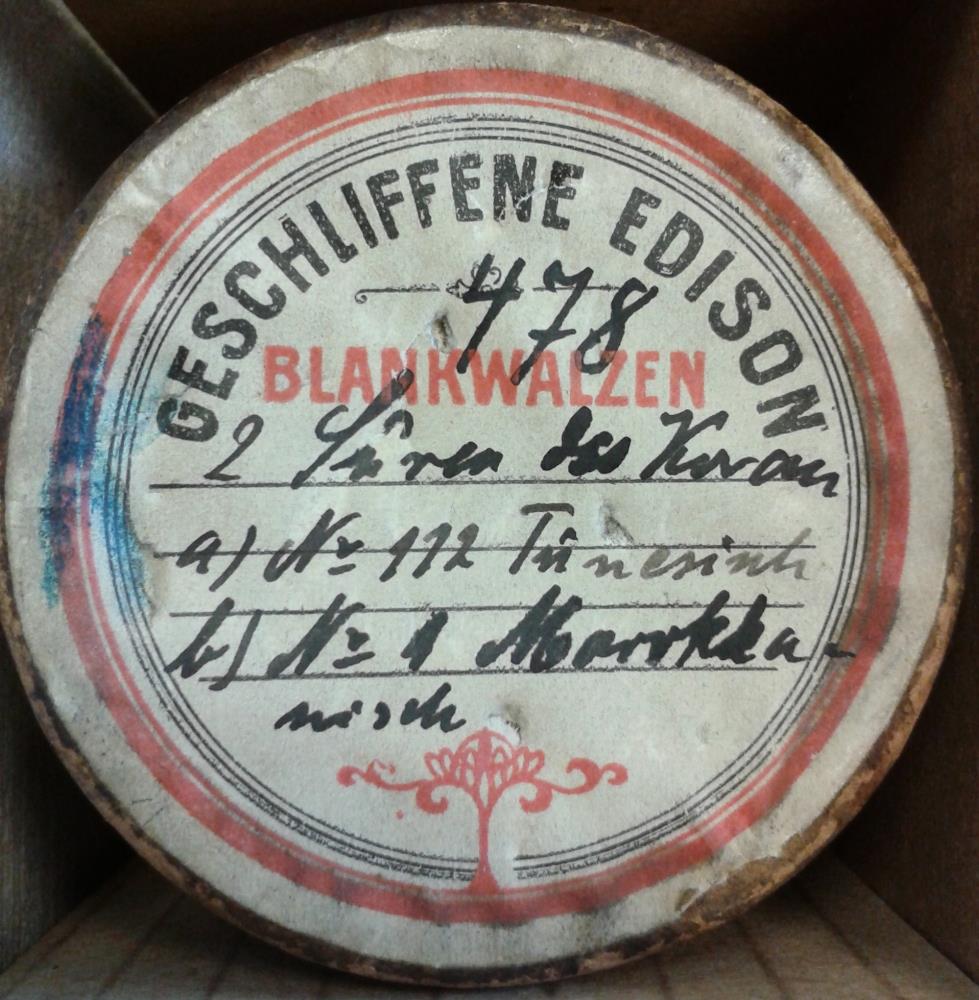 GESCHLIFFENE EDISON
478
BLANKWALZEN
2 Sûren des Koran
a) No 112 Tûnesisch
b) No 1 Marokka-
nisch